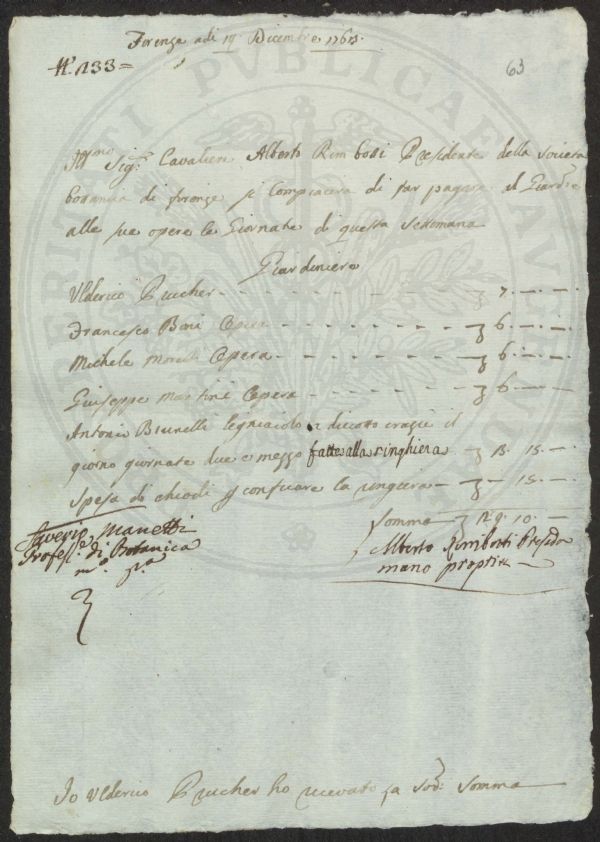 Firenze adi 17 Dicembre 1763.
N.° 133 =
63
Ill.mo Sig.r Cavaliere Alberto Rimbotti Presidente della società
botanica di firenze si Compiacerà di far pagare al Giard.re
alle sue opere le Giornate di questa settimana
Giardiniere
Ulderico Prucher
Francesco Boni Opera 6
Michele Opera 6
Giuseppe Martini Opera 6
Antonio Brunelli legniaiolo a diciotto crazie il
giorno giornate due e mezzo fatte alla ringhiera 15
spesa di chiodi p conficare la ringiera 15
Somma 10
Saverio Manetti
Profess.e di Botanica
m.o p.a
Alberto Rimbotti Presid.e
mano propria
Io Ulderico Prucher ho ricevuto la sod.a somma